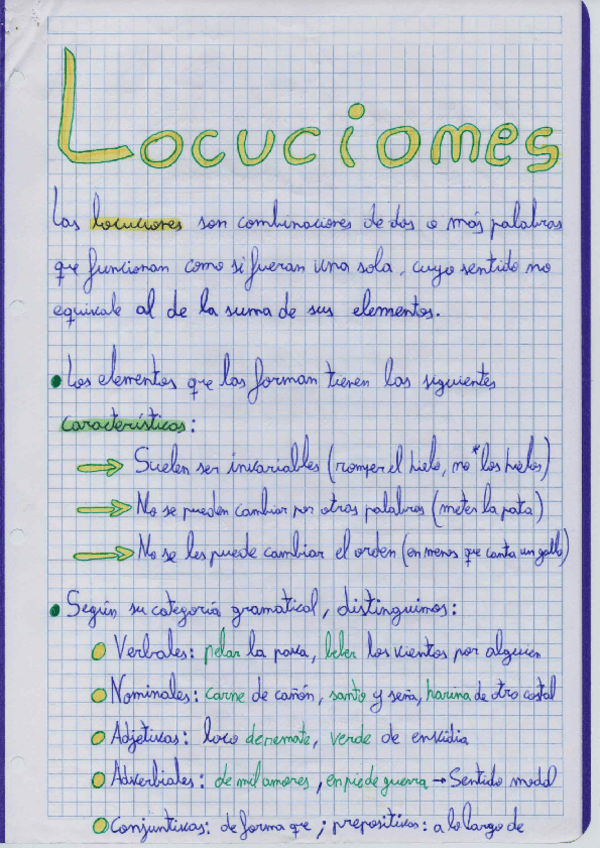 Locuciones
Las locuciones son combinaciones de dos o más palabras
que funcionan como si fueran una sola, cuyo sentido no
equivale al de la suma de sus elementos.
• Los elementos que las forman tienen las siguientes
características:
⇒ Suelen ser invariables (romper el hielo, no *los hielos)
⇒ No se pueden cambiar por otras palabras (meter la pata)
⇒ No se les puede cambiar el orden (en menos que canta un gallo)
• Según su categoría gramatical, distinguimos:
Verbales: pelar la pava, beber los vientos por alguien
Nominales: carne de cañón, santo y seña, harina de otro costal
Adjetivas: loco de remate, verde de envidia
Adverbiales: de mil amores, en pie de guerra → Sentido modal
Conjuntivas: de forma que; prepositivas: a lo largo de